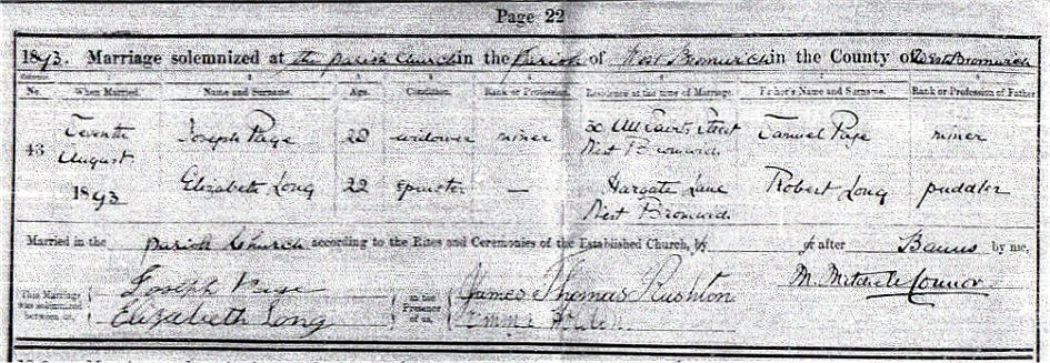 Page 22
1893. Marriage solemnized at the parish Church in the Parish of West Bromwich in the County of West Bromwich
No. When Married. Name and Surname. Age. Condition. Rank or Profession. Residence at the time of Marriage. Father's Name and Surname. Rank or Profession of Father
43 August 1893 Joseph Page widower miner 30 All Saints Street West Bromwich Samuel Page miner
Elizabeth Long 22 spinster — Hargate Lane West Bromwich Robert Long puddler
Married in the parish Church according to the Rites and Ceremonies of the Established Church, by or after Banns by me,
M. Mitchell Connor
This Marriage was solemnized between us, Joseph Page in the Presence of us, James Thomas Rushton
Elizabeth Long Emma